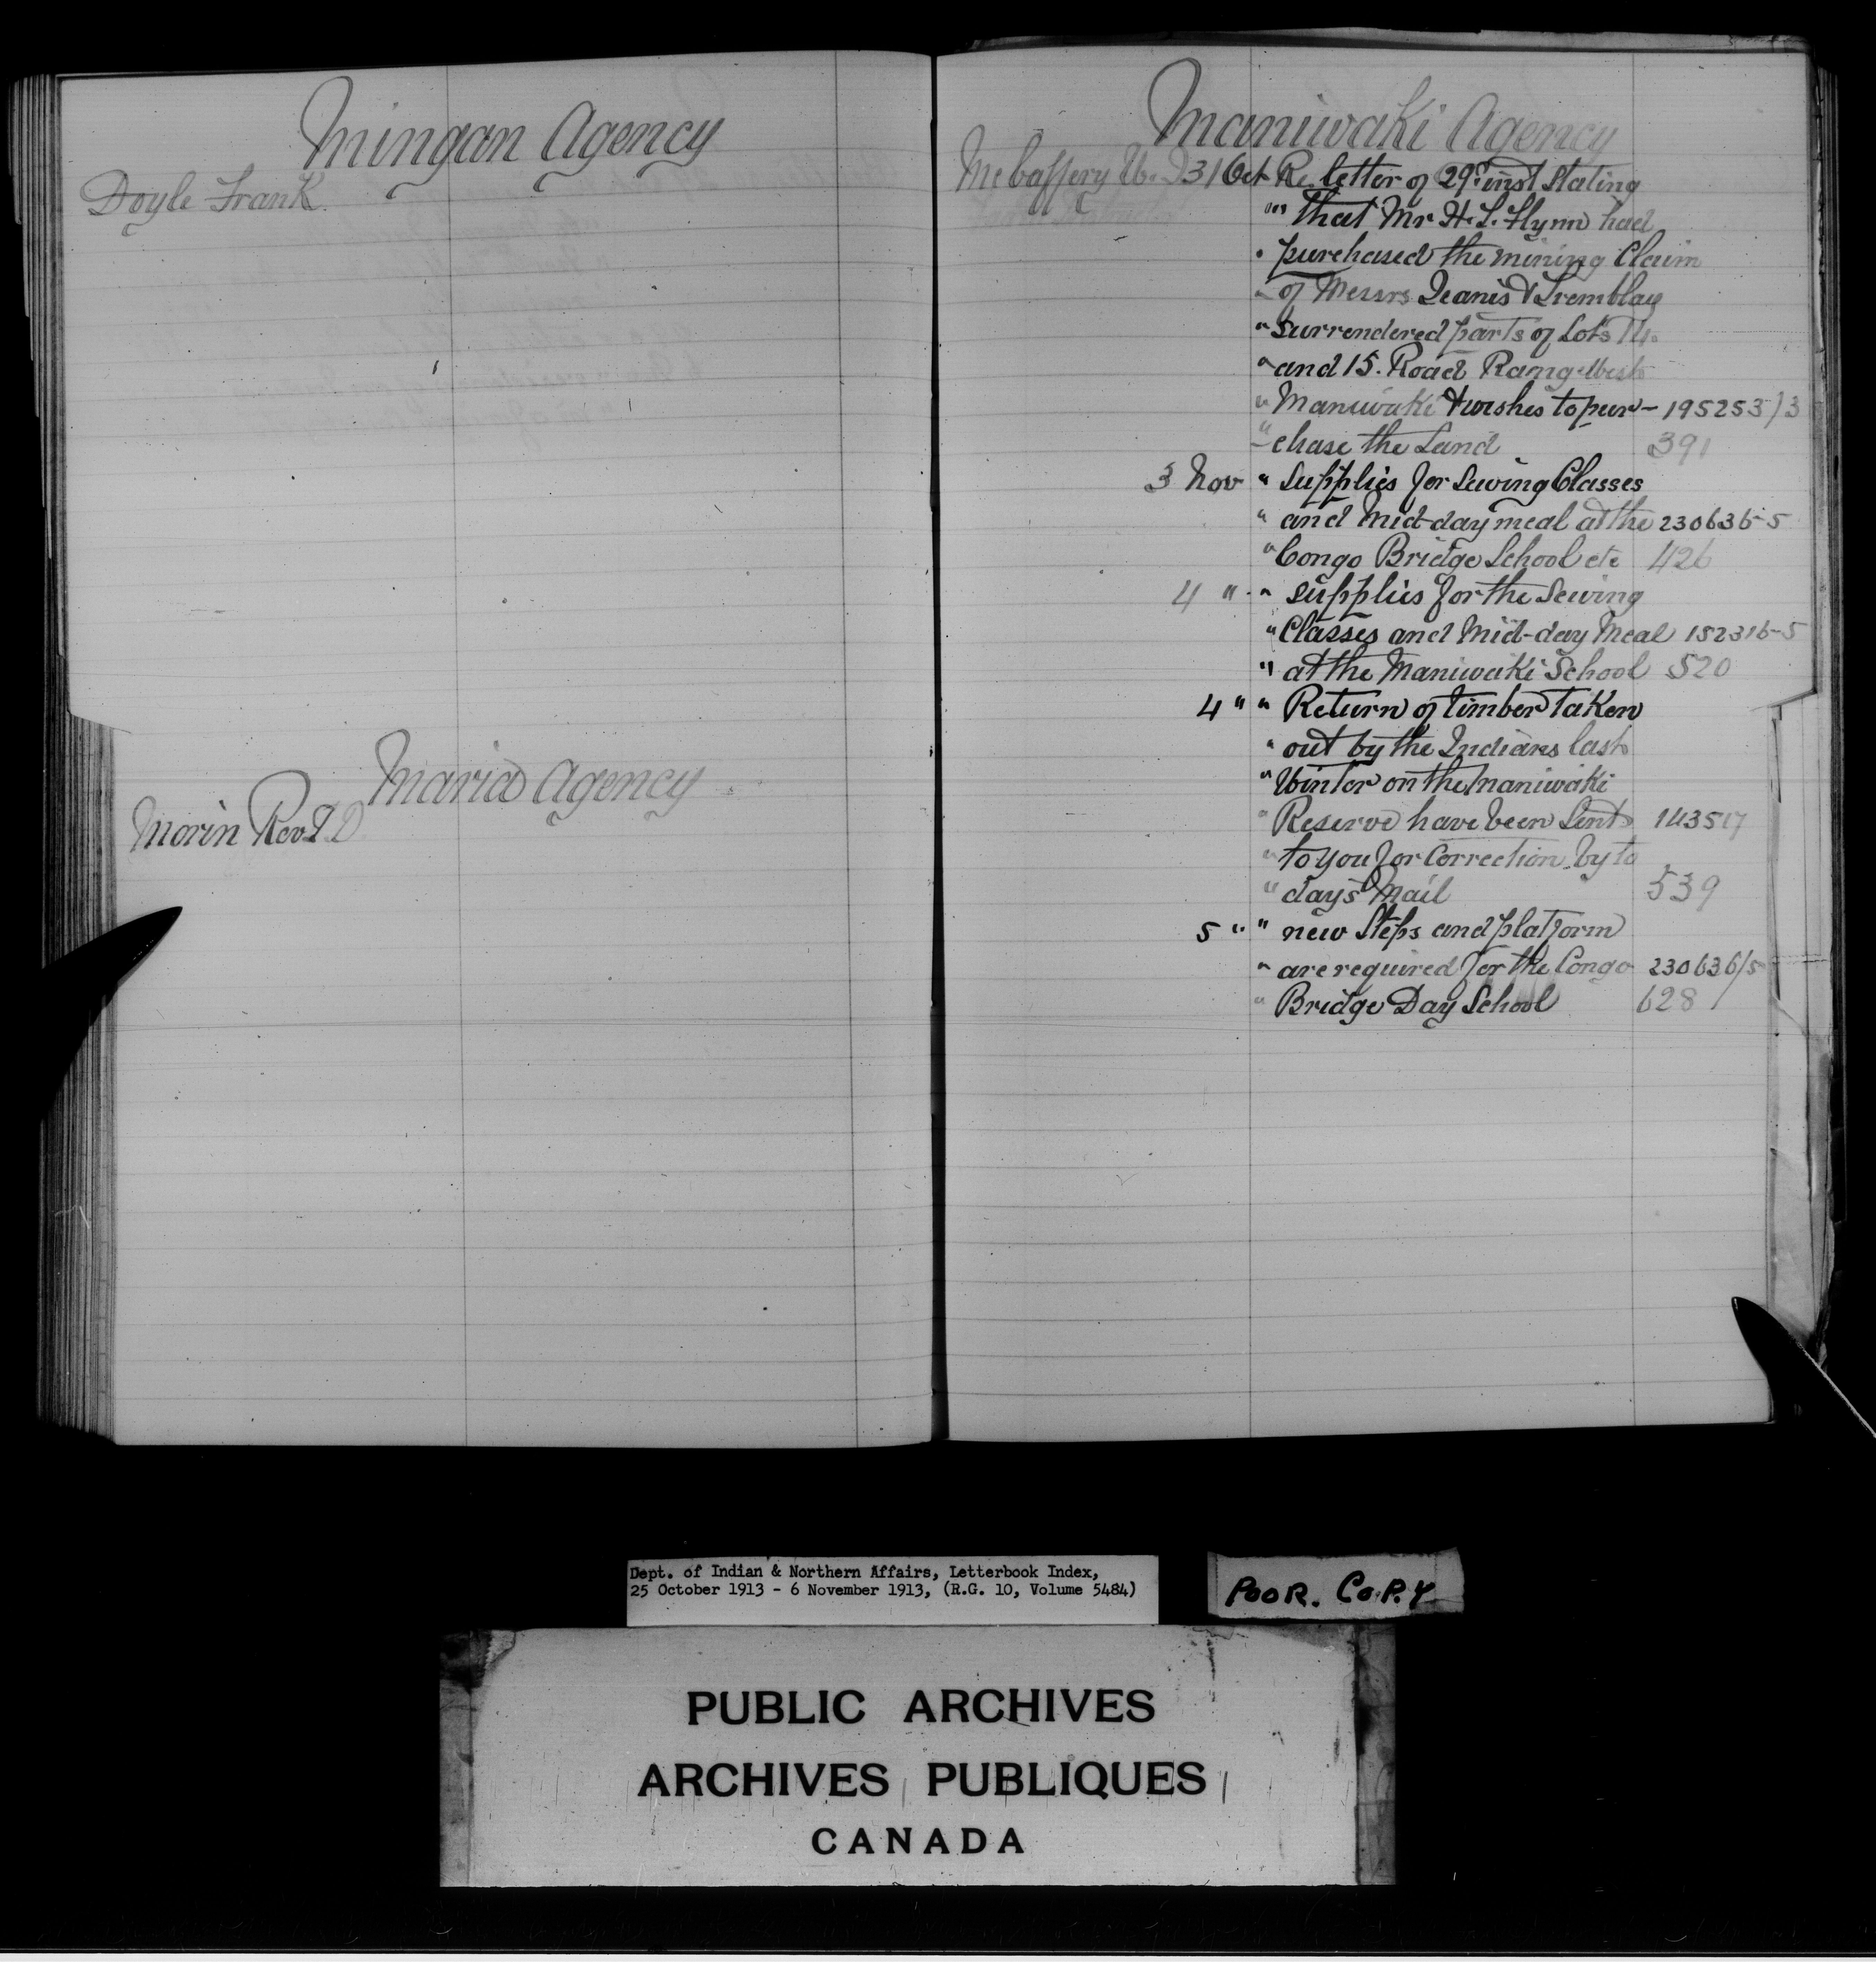 Mingan Agency
Doyle Frank
Maria Agency
Morin Revd J. D.
Maniwaki Agency
McCaffery W. J. 31 Oct Re. letter of 29th inst stating
" " that Mr H. L. Flynn had
" purchased the mining Claim
" of Messrs Jeanis & Tremblay
" surrendered parts of Lots 14.
" and 15. Road Range West
" Maniwaki & wishes to pur- 195253/3
" chase the Land 391
3 Nov " supplies for Sewing Classes
" and Mid-day meal at the 230636-5
" Congo Bridge School etc 426
4 " " supplies for the Sewing
" Classes and Mid-day Meal 152316-5
" at the Maniwaki School 520
4 " " Return of timber Taken
" out by the Indians last
" Winter on the Maniwaki
" Reserve have been Sent 143517
" to you for Correction by to
" days Mail 539
5 " " new Steps and platform
" are required for the Congo 230636/5
" Bridge Day School 628
Dept. of Indian & Northern Affairs, Letterbook Index,
25 October 1913 - 6 November 1913, (R.G. 10, Volume 5484)
POOR. COPY
PUBLIC ARCHIVES
ARCHIVES PUBLIQUES
CANADA